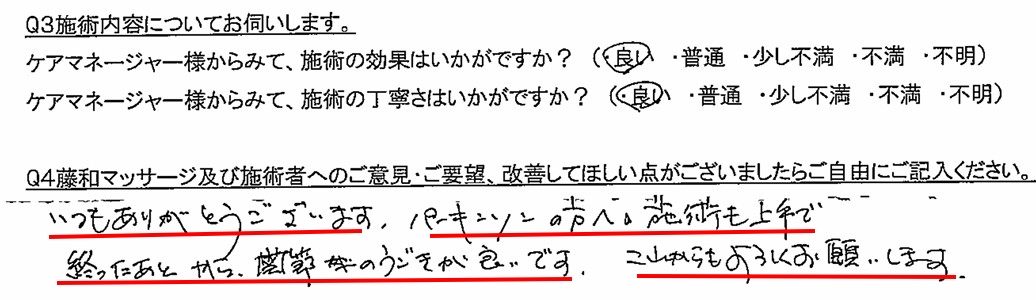 Q3施術内容についてお伺いします。
ケアマネージャー様からみて、施術の効果はいかがですか？（・良い ・普通 ・少し不満 ・不満 ・不明）
ケアマネージャー様からみて、施術の丁寧さはいかがですか？（・良い ・普通 ・少し不満 ・不満 ・不明）
Q4藤和マッサージ及び施術者へのご意見・ご要望、改善してほしい点がございましたらご自由にご記入ください。
いつもありがとうございます。パーキンソンの方への施術も上手で
終ったあとから、関節のうごきが良いです。これからもよろしくお願いします。